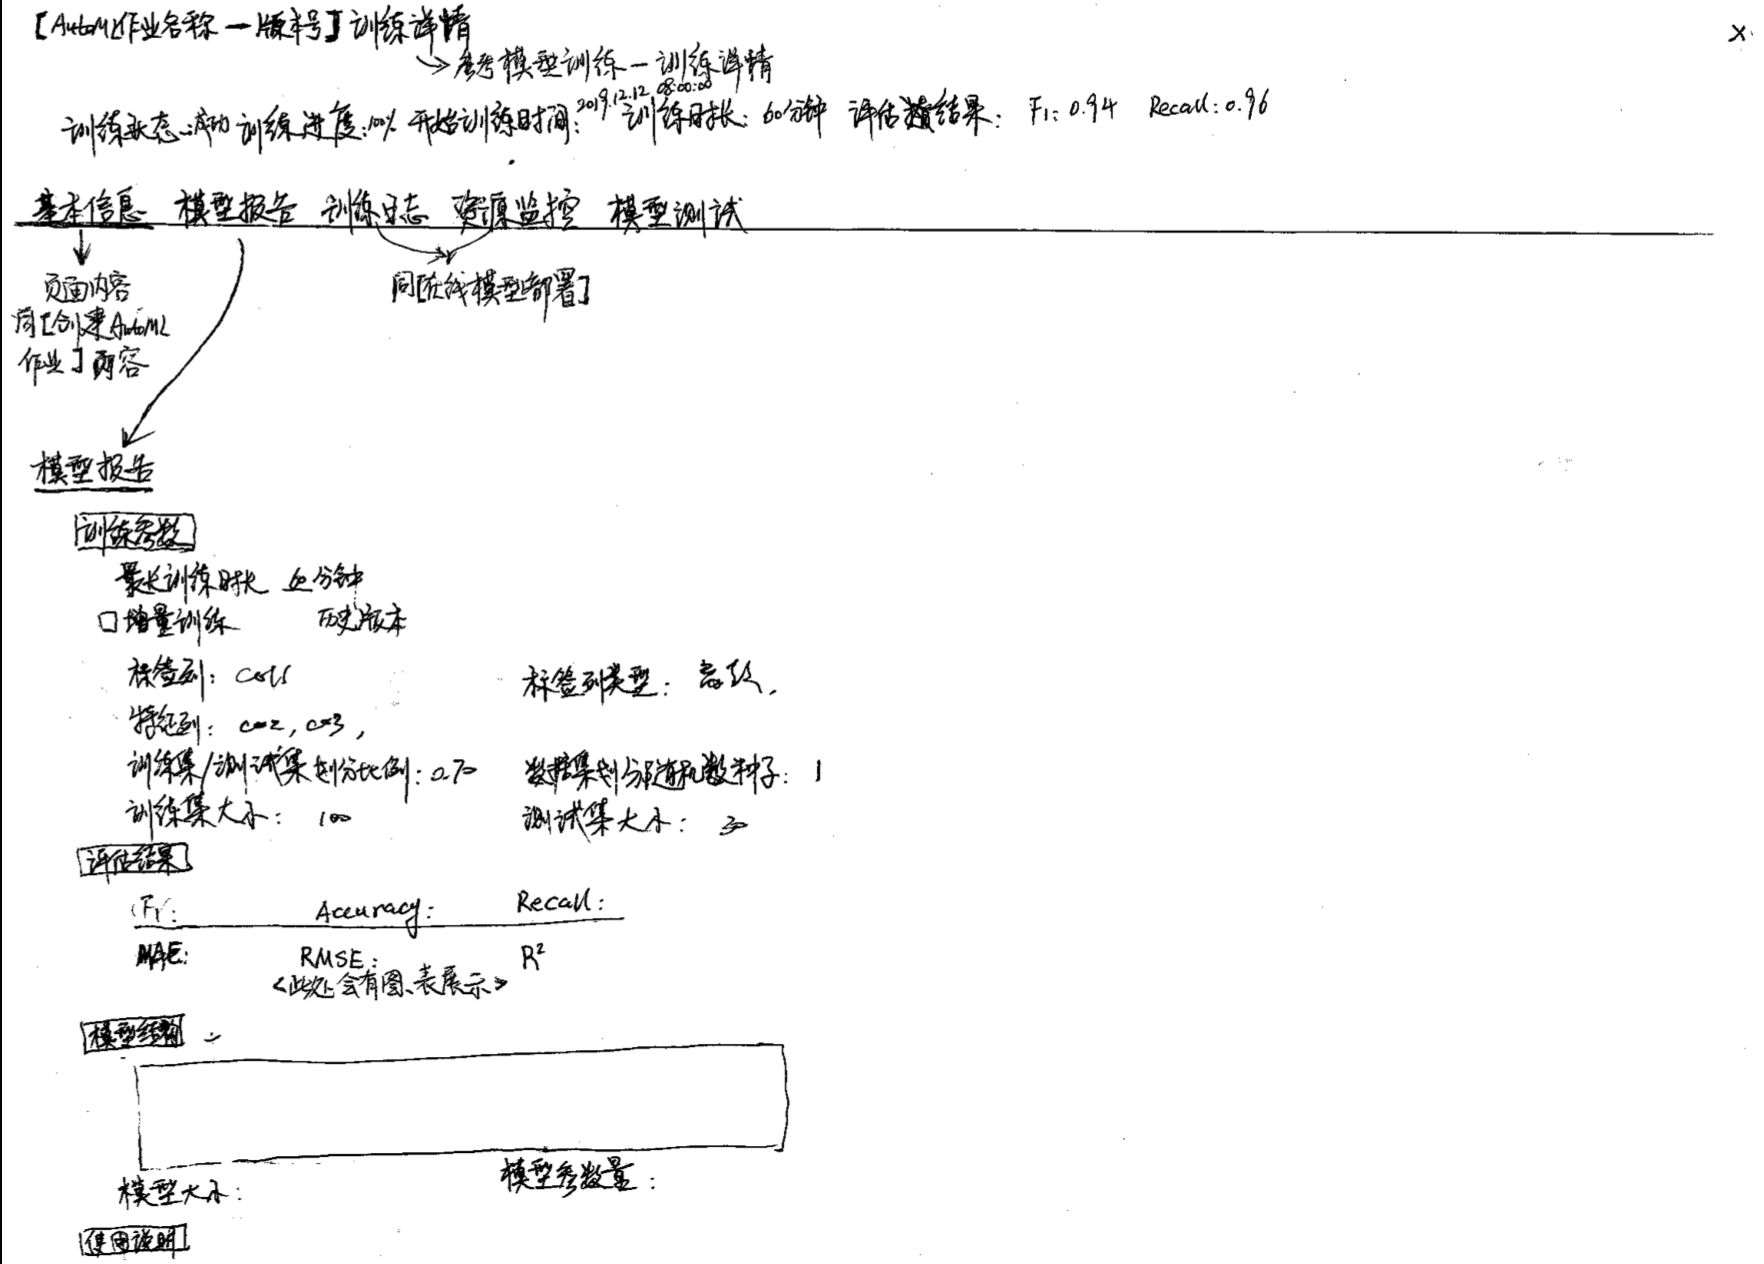 [AutoML作业名称-版本号]训练详情
X
参考模型训练-训练详情
训练状态:成功 训练进度:100% 开始训练时间:2019.12.12 08:00:00 训练时长:60分钟 评估结果: F1:0.94 Recall:0.96
基本信息 模型报告 训练日志 资源监控 模型测试
页面内容
同[创建AutoML
作业]内容
同[在线模型部署]
模型报告
训练参数
最长训练时长 60分钟
增量训练 历史版本
标签列: 标签列类型:
特征列:
训练集/测试集划分比例:0.70 数据集划分随机数种子: 1
训练集大小: 100 测试集大小: 30
评估结果
F1: Accuracy: Recall:
MAE: RMSE: R²
<此处会有图、表展示>
模型结构
模型大小: 模型参数量:
使用说明